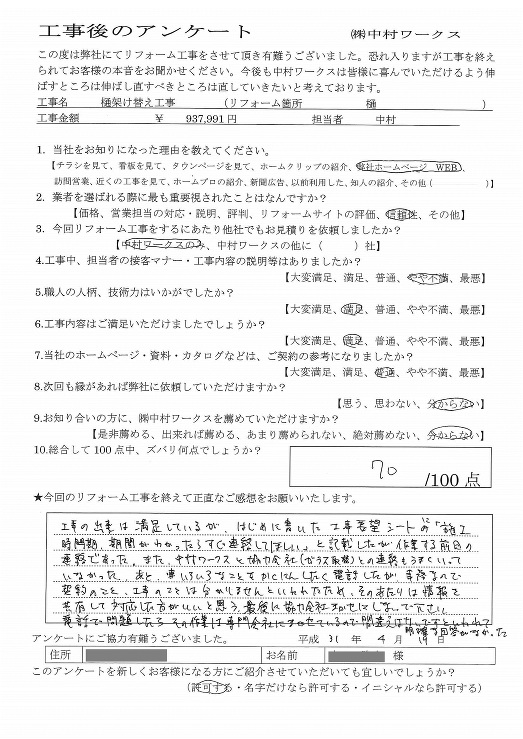 工事後のアンケート　㈱中村ワークス
この度は弊社にてリフォーム工事をさせて頂き有難うございました。恐れ入りますが工事を終え
られてお客様の本音をお聞かせください。今後も中村ワークスは皆様に喜んでいただけるよう伸
ばすところは伸ばし直すべきところは直していきたいと考えております。
工事名　樋架け替え工事　（リフォーム箇所　樋　）
工事金額　￥　937,991円　担当者　中村
1. 当社をお知りになった理由を教えてください。
【チラシを見て、看板を見て、タウンページを見て、ホームクリップの紹介、弊社ホームページ　WEB）、
訪問営業、近くの工事を見て、ホームプロの紹介、新聞広告、以前利用した、知人の紹介、その他（　）】
2. 業者を選ばれる際に最も重要視されたことはなんですか？
【価格、営業担当の対応・説明、評判、リフォームサイトの評価、信頼性、その他】
3. 今回リフォーム工事をするにあたり他社でもお見積りを依頼しましたか？
【中村ワークスのみ、中村ワークスの他に（　）社】
4.工事中、担当者の接客マナー・工事内容の説明等はありましたか？
【大変満足、満足、普通、やや不満、最悪】
5.職人の人柄、技術力はいかがでしたか？
【大変満足、満足、普通、やや不満、最悪】
6.工事内容はご満足いただけましたでしょうか？
【大変満足、満足、普通、やや不満、最悪】
7.当社のホームページ・資料・カタログなどは、ご契約の参考になりましたか？
【大変満足、満足、普通、やや不満、最悪】
8.次回も縁があれば弊社に依頼していただけますか？
【思う、思わない、分からない】
9.お知り合いの方に、㈱中村ワークスを薦めていただけますか？
【是非薦める、出来れば薦める、あまり薦められない、絶対薦めない、分からない】
10.総合して100点中、ズバリ何点でしょうか？
70 /100点
★今回のリフォーム工事を終えて正直なご感想をお願いいたします。
工事の出来は満足しているが、はじめに書いた工事要望シートの「施工
時間期、期間がわかったらすぐ連絡してほしい」と記載したが作業する前日の
連絡であった。また、中村ワークスと協力会社との連絡もうまくいって
いなかった。あと、電話したが
契約のこと、工事のことは分かりませんといわれたため、そのあたりは情報を
共有して対応した方がいいと思う。最後に協力会社まかせにしないで下さい。
電話で問題したら その作業は専門会社にまかせているので問題はないですといわれて
明確な回答がなかった
アンケートにご協力有難うございました。　平成 31 年 4 月 19 日
住所　お名前　様
このアンケートを新しくお客様になる方にご紹介させていただいても宜しいでしょうか？
（許可する・名字だけなら許可する・イニシャルなら許可する）